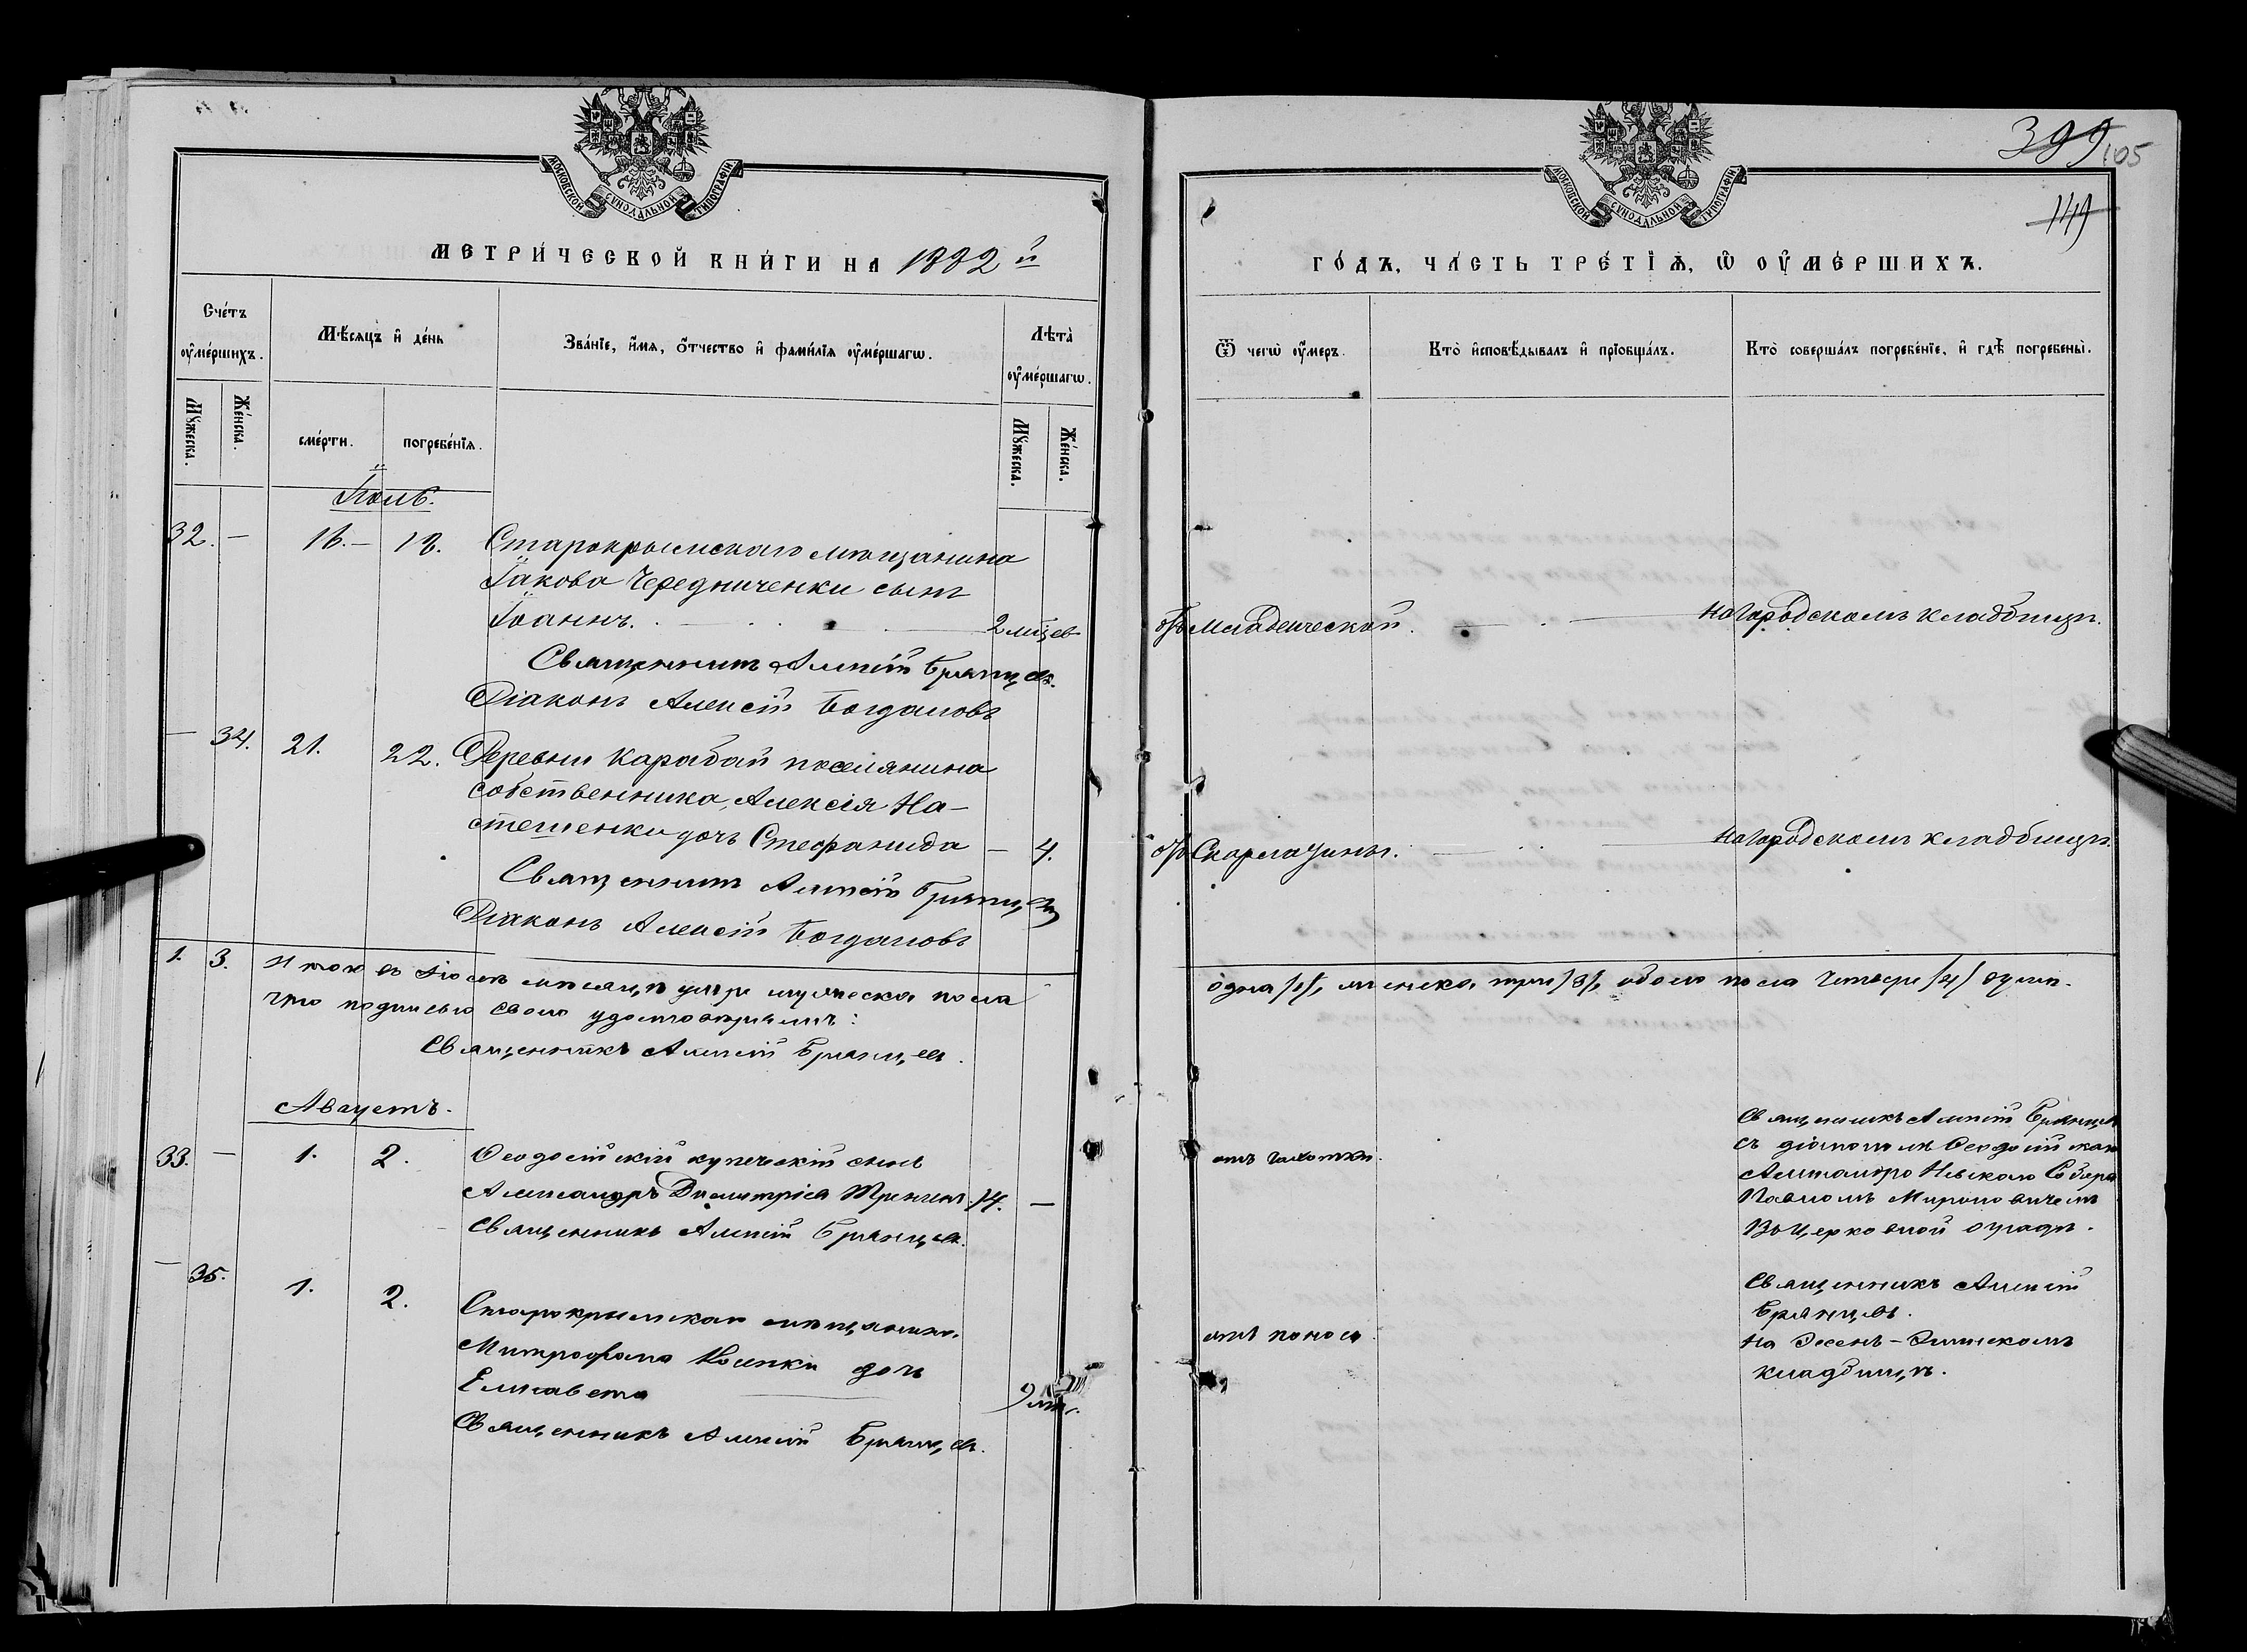 МОСКОВСКОЙ СѴНОДАЛЬНОЙ ТИПОГРАФІИ
МЕТРИ́ЧЕСКОЙ КНИ́ГИ НА 1882 й
Сче́тъ оу҆ме́ршихъ.
Мѣ́сяцъ и҆ де́нь
Зва́нїе, и҆́мя, ѻ҆́тчество и҆ фами́лїя оу҆ме́ршагѡ.
Лѣта̀ оу҆ме́ршагѡ.
Мꙋ́жеска.
Же́нска.
сме́рти.
погребе́нїя.
Мꙋ́жеска.
Же́нска.
Іюль.
32. — 16. — 18. Старокрымскаго мѣщанина
Іакова Чередниченки сынъ
Іоаннъ. 2 мѣсц
Священникъ Алексій Брянцевъ.
Діаконъ Алексій Богдановъ
— 34. 21. 22. Деревни Карабай поселянина
собственника, Алексія На-
стешенки дочь Стефанида — 4.
Священникъ Алексій Брянцевъ
Діаконъ Алексій Богдановъ
1. 3. Итого въ Іюлѣ мѣсяцѣ умерло мужеска пола
что подписью своею удостовѣряемъ:
Священникъ Алексій Брянцевъ.
Августъ.
33. — 1. 2. Ѳеодосійскій купеческій сынъ
Александръ Димитріевъ 14. —
Священникъ Алексій Брянцевъ.
— 35. 1. 2. Старокрымскаго мѣщанина
Митрофана дочь
Елисавета 9
Священникъ Алексій Брянцевъ.
399 105
149
МОСКОВСКОЙ СѴНОДАЛЬНОЙ ТИПОГРАФІИ
ГО́ДЪ, ЧА́СТЬ ТРЕ́ТЇѦ, Ѡ҆ ОУ҆МЕ́РШИХЪ.
Ѿ чегѡ̀ оу҆́меръ.
Кто̀ и҆сповѣ́дывалъ и҆ прїобща́лъ.
Кто̀ соверша́лъ погребе́нїе, и҆ гдѣ̀ погребены̀.
отъ младенческой. на городскомъ кладбищѣ.
отъ Скарлатины. на городскомъ кладбищѣ.
одна /1/, женска, три /3/, обоего пола четыре /4/ души.
отъ чахотки.
Священникъ Алексій Брянцевъ
съ діакономъ Ѳеодосійскаго
Александро Невскаго Собора
Павломъ Мироновичемъ
Въ Церковной оградѣ.
отъ поноса.
Священникъ Алексій
Брянцевъ.
на
кладбищѣ.